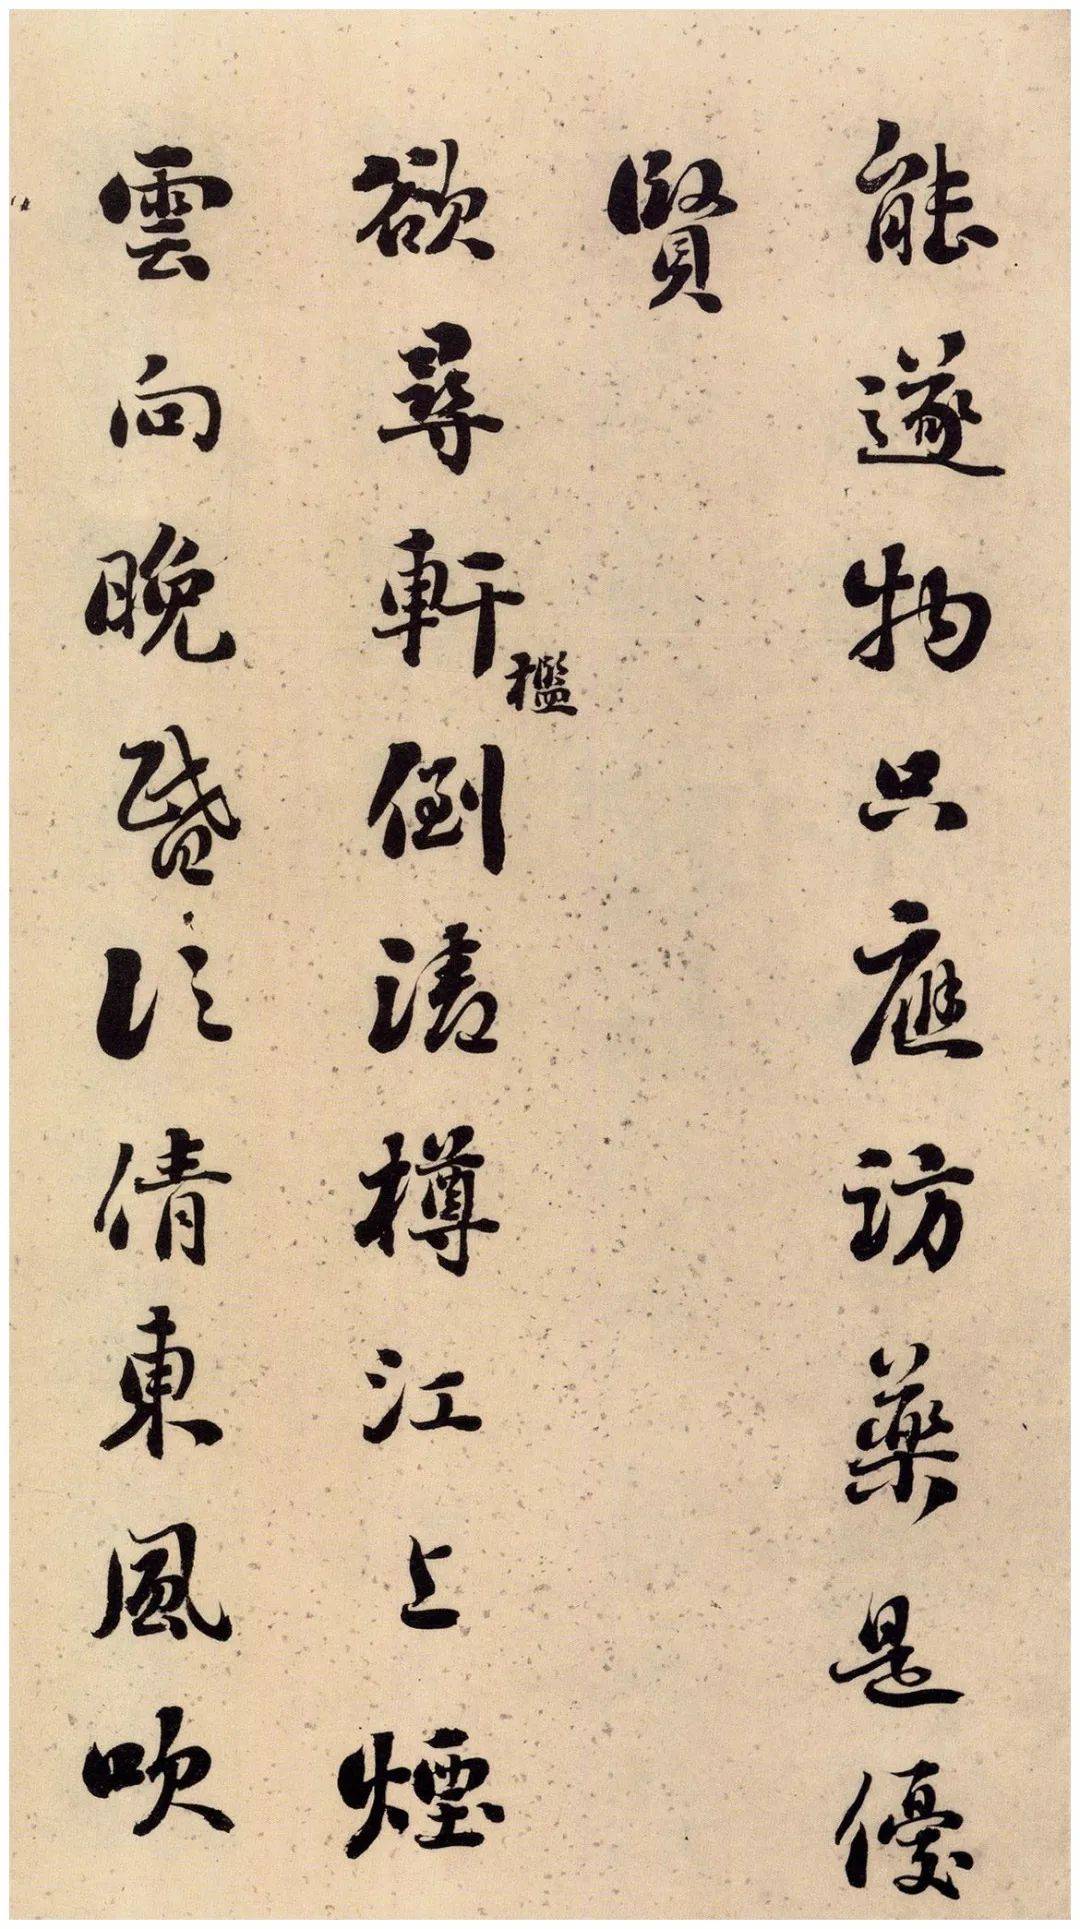 能遂物只應訪藥是優
賢
欲尋軒檻倒清樽江上煙
雲向晚昏須倩東風吹